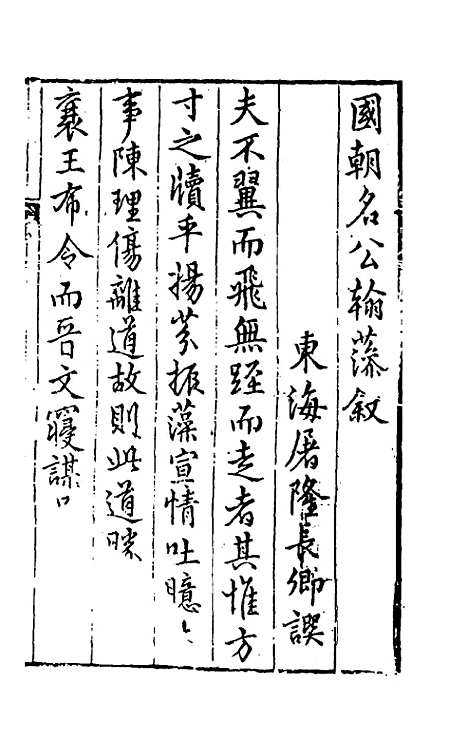 國朝名公翰藻敘
東海屠隆長卿譔
夫不翼而飛無踁而走者其惟方
寸之牘乎揚芬振藻宣情吐臆
事陳理傷離道故則此道睽
襄王布令而晉文寢謀